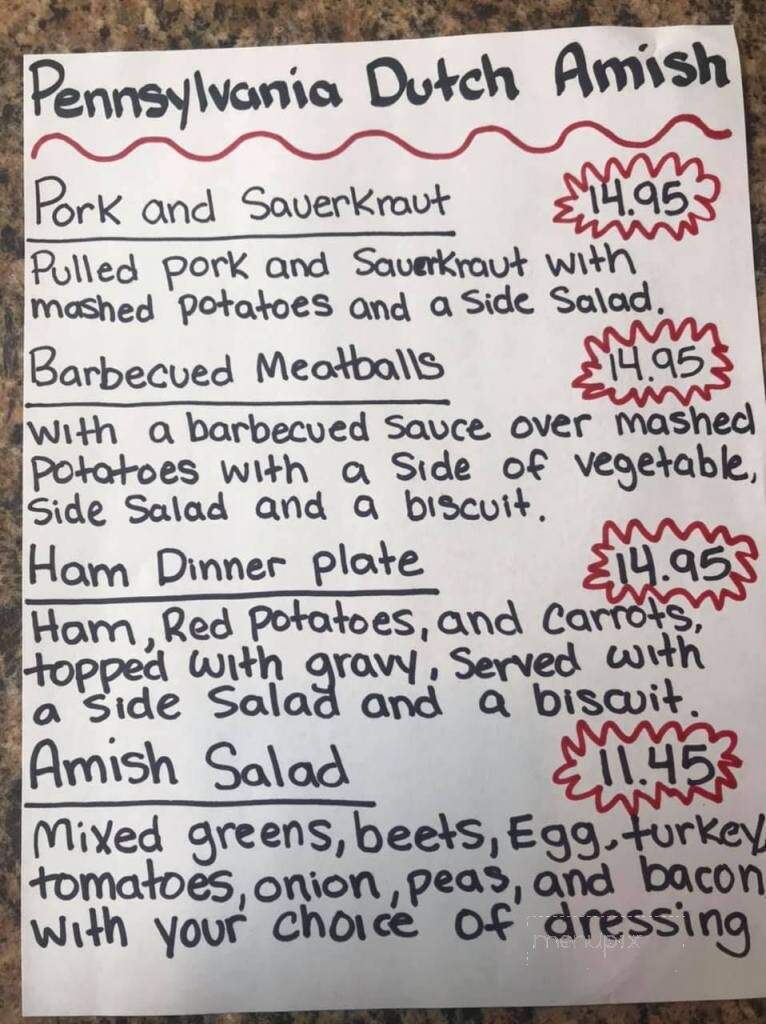 Pennsylvania Dutch Amish
Pork and Sauerkraut 14.95
Pulled pork and Sauerkraut with
mashed potatoes and a side salad.
Barbecued Meatballs 14.95
with a barbecued sauce over mashed
potatoes with a side of vegetable,
side salad and a biscuit.
Ham Dinner plate 14.95
Ham, Red potatoes, and carrots,
topped with gravy. Served with
a side salad and a biscuit.
Amish Salad 11.45
Mixed greens, beets, Egg, turkey,
tomatoes, onion, peas, and bacon
with your choice of dressing
menupix